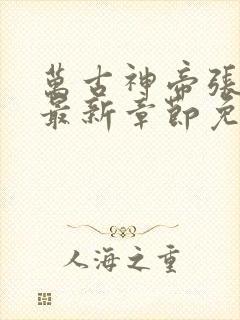 萬古神帝張
最新章節免
人海之重